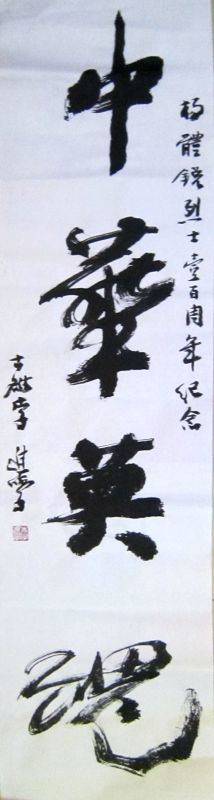 杨體鋭烈士壹百周年纪念
中華英魂